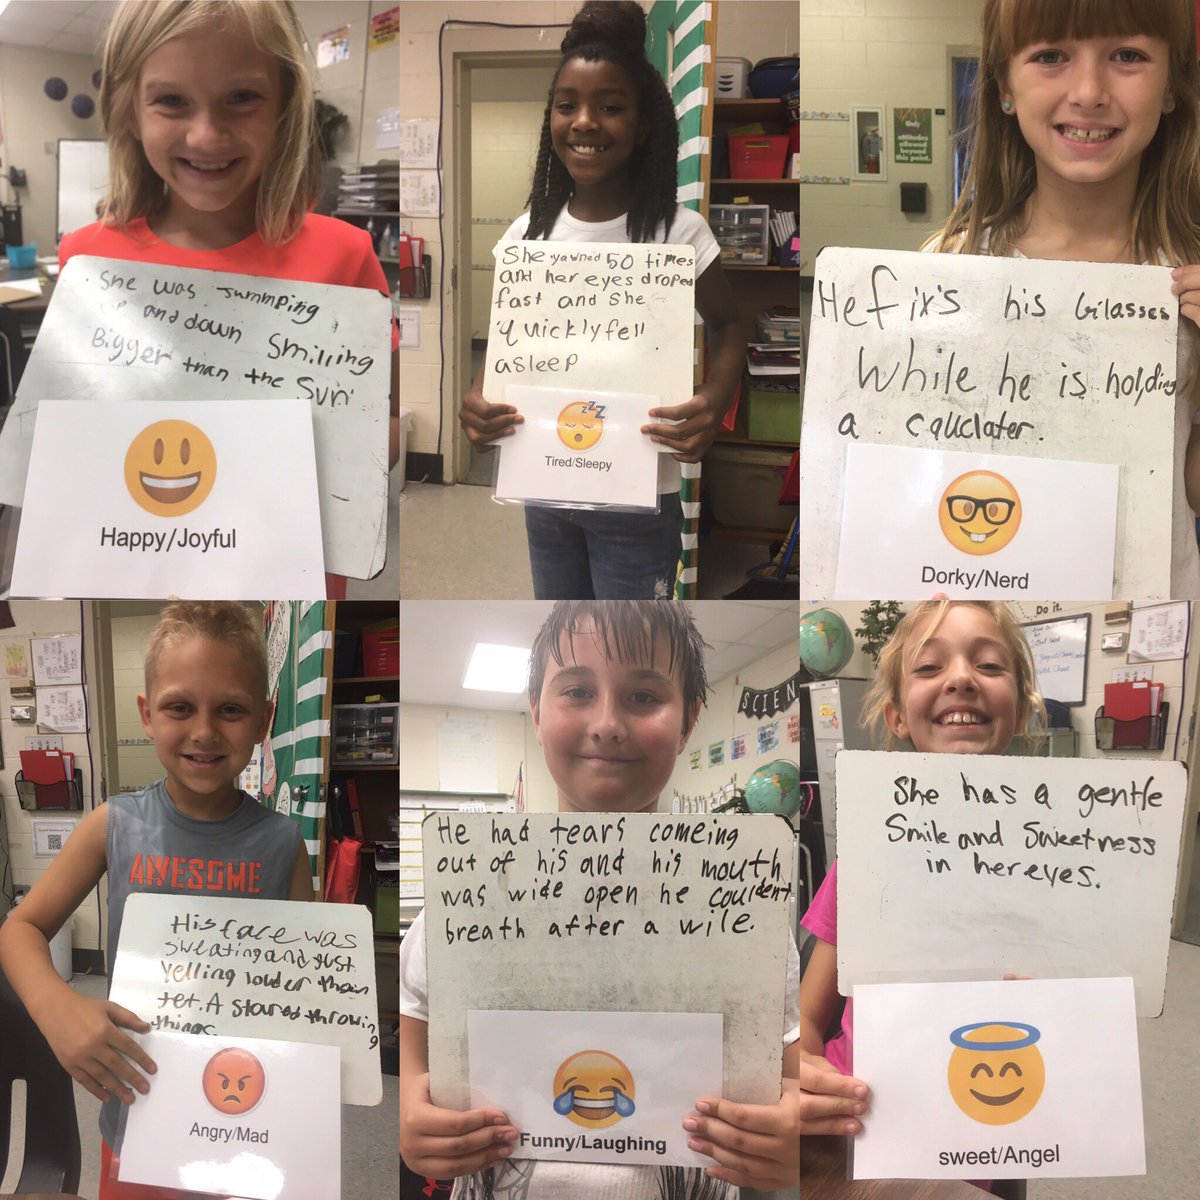 She was Jummping
up and down Smilling
Bigger than the Sun
Happy/Joyful
She yawned 50 times
and her eyes droped
fast and she
quickly fell
asleep
zzz
Tired/Sleepy
Only
attitudes
allowed
beyond
this point.
He fix's his Glasses
While he is holding
a cauclater.
Dorky/Nerd
AWESOME
His face was
sweating and just
Yelling louder than
jet. A stared throwing
things.
Angry/Mad
SCIEN
He had tears comeing
out of his and his mouth
was wide open he couldent
breath after a wile.
Funny/Laughing
Do it.
She has a gentle
Smile and Sweetness
in her eyes.
sweet/Angel